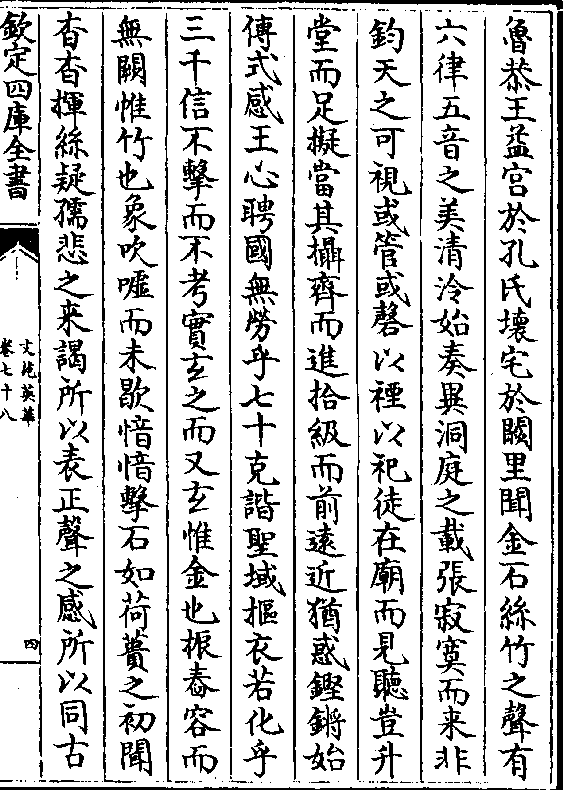 魯恭王益宫於孔氏壊宅於闕里聞金石絲竹之聲有
六律五音之美清泠始奏異洞庭之載張寂寞而来非
鈞天之可視或管或磬以禋以祀徒在廟而見聽豈升
堂而足擬當其攝齊而進拾級而前遠近猶惑鏗鏘始
傳式感王心聘國無勞乎七十克諧聖域摳衣若化乎
三千信不擊而不考實𤣥之而又𤣥惟金也振舂容而
無闕惟竹也象吹嘘而未歇愔愔擊石如荷蕢之初聞
杳杳揮絲疑孺悲之来謁所以表正聲之感所以同古
欽定四庫全書
文苑英華
卷七十八
四